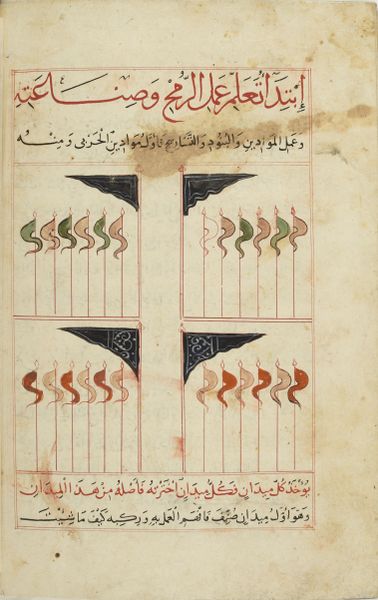 إبتدأ تعلم عمل الرمح وصناعته
وعمل الموادين والبنود والتسارح فاول موادين الحربى ومنه
يوخذ كل ميدان فكل ميدان اخترته فاصله من هذا الميدان
وهو اول ميدان فافهم العمل به وركبه كيف ما شيت